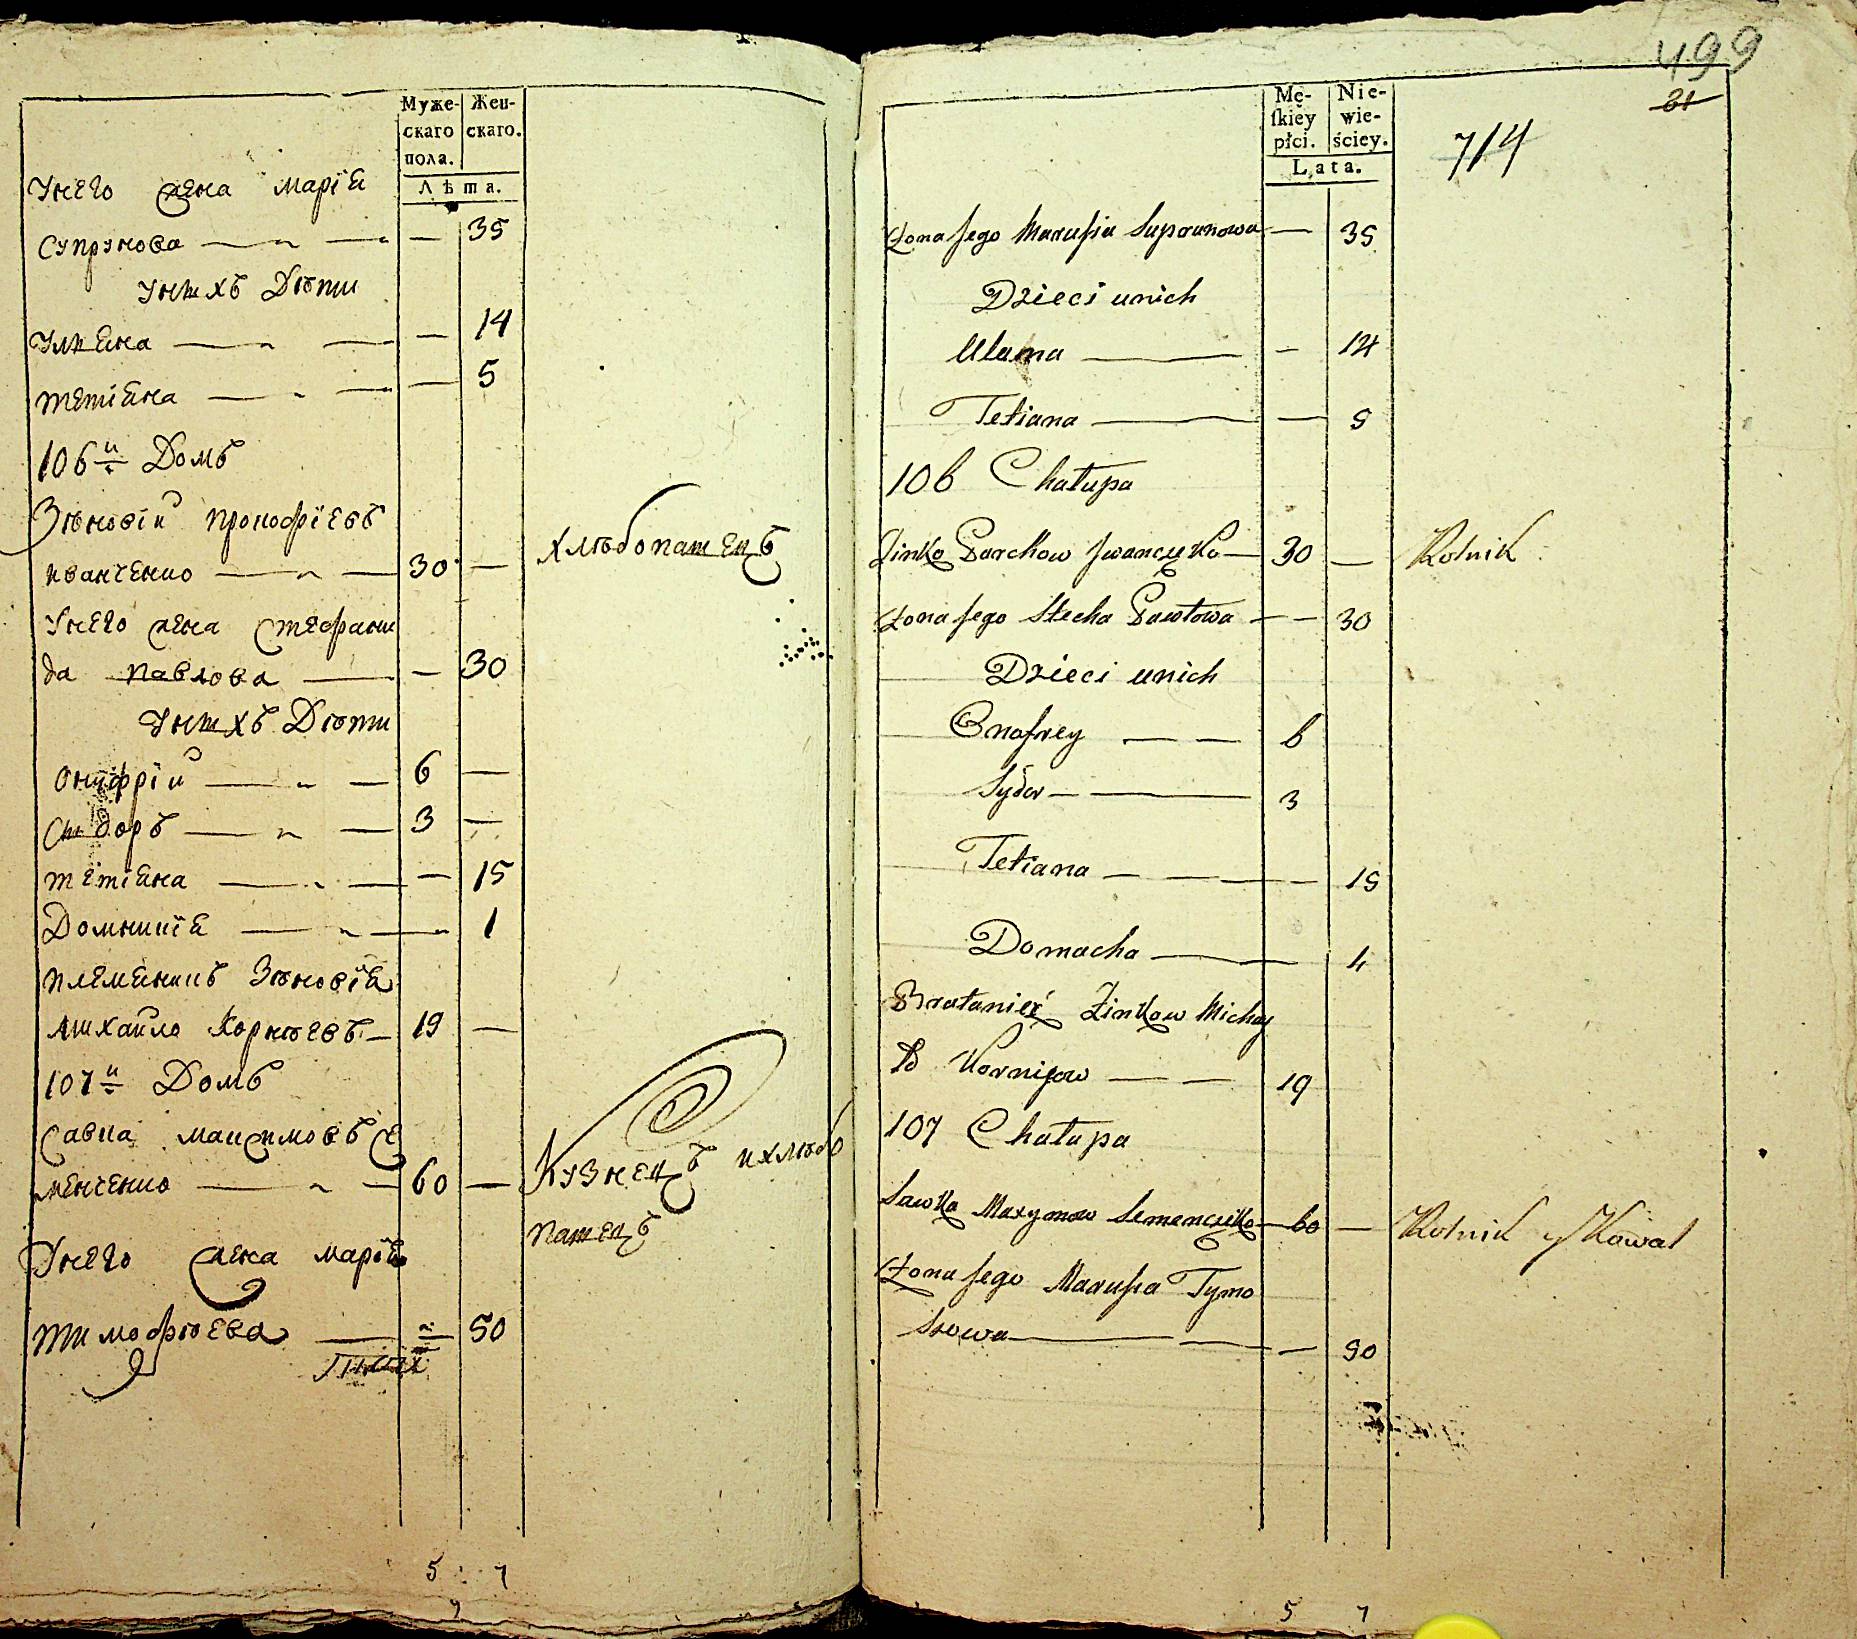 Муже-
скаго
пола.
Жен-
скаго.
Лѣта.
Унего жена Марія
Супрунова — 35
Унихъ Дѣти
Уляна — 14
Тетіяна — 5
106й Домъ
Зѣновій Прокофіевъ
Иванченко — 30 — Хлѣбопашецъ
Унего жена Стефани
да Павлова — 30
Унихъ Дѣти
Онуфрій — 6 —
Сидоръ — 3 —
Тетіяна — 15
Домникія — 1
Племяникъ Зѣновія
Михайло Корнѣевъ — 19 —
107й Домъ
Савка Максимовъ Се
менченко — 60 — Кузнецъ ихлѣбо
пашецъ
Унего жена Марія
Тимофѣева — 50
5 : 7
499
21
Mę-
ſkiey
płci.
Nie-
wie-
ściey.
Lata.
714
Żona Jego Marusia Suprunowa — 35
Dzieci unich
Ulana — 14
Tetiana — 5
106 Chałupa
Zinko Parchow Iwanczęko — 30 — Rolnik
Żona Jego Stecha Pawłowa — 30
Dzieci unich
Onofrey — 6
Sydor — 3
Tetiana — 15
Domacha — 1
Brataniec Zinkow Michay
ło Kornijow — 19
107 Chałupa
Sawka Maxymow Semenczęko — 60 — Rolnik y Kowal
Żona Jego Marusia Tymo
szowa — 50
5 7